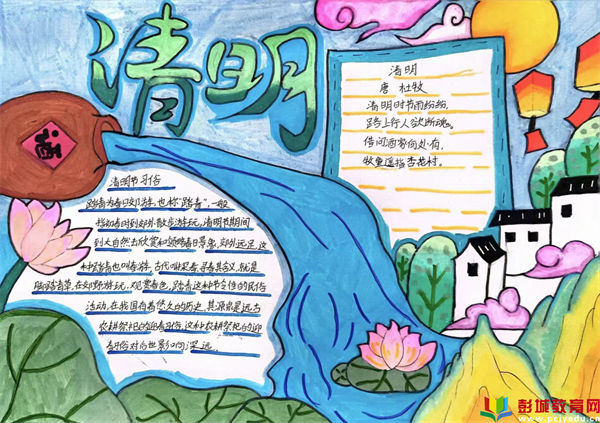 清明
清明
唐 杜牧
清明时节雨纷纷，
路上行人欲断魂。
借问酒家何处有，
牧童遥指杏花村。
酒
清明节习俗
踏青为春日郊游，也称“踏青”，一般
指初春时到郊外散步游玩，清明节期间
到大自然去欣赏和领略春日景象，郊外远足 这
种踏青也叫春游，古代叫探春、寻春其含义，就是
脚踏青草，在郊野游玩，观赏春色，踏青这种节令性的民俗
活动，在我国有着悠久的历史，其源泉是远古
农耕祭祀的迎春习俗，这种农耕祭祀的迎
春习俗对后世影响深远。
彭城教育网
www.pcjyedu.cn